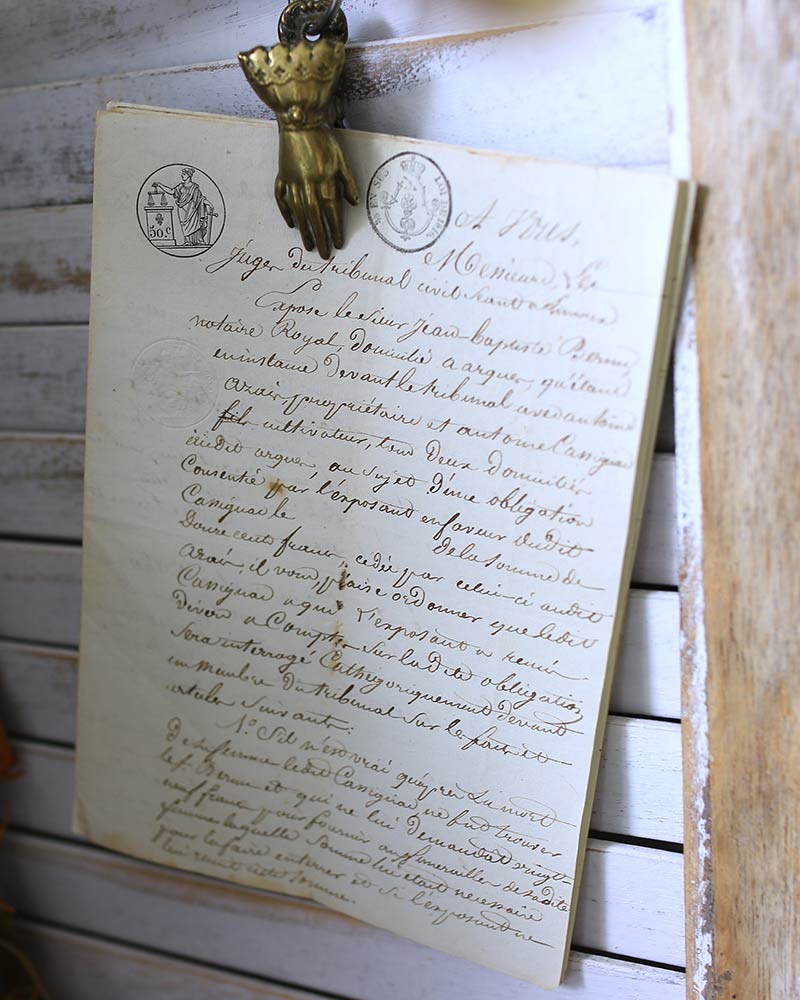 50 c
A Vous,
Messieurs Les
Juges du tribunal civil Séant a
Expose le Sieur Jean Baptiste
notaire Royal, domicilié a arques, qu'étant
en instance devant le tribunal avec antoine
propriétaire et antoine Cassignac
fils cultivateur, tous deux domiciliés
audit arques au Sujet d'une obligation
Consentie par l'exposant en faveur dudit
Cassignac le de la Somme de
Douze cent francs, cédée par celui-ci audit
il vous plaise ordonner que ledit
Cassignac a qui L'exposant a remis
Divers a Compte Sur ladite obligation
Sera interrogé Cathégoriquement devant
un membre du tribunal Sur les faits et
articles Suivants:
1.° S'il n'est vrai qu'après La mort
De Sa femme ledit Cassignac ne fut trouver
le S. et qui ne lui Demandat vingt-
neuf francs pour fournir aux funerailles de Sadite
femme laquelle Somme lui était nécessaire
pour la faire enterrer et Si l'exposant ne
lui remit cette Somme.